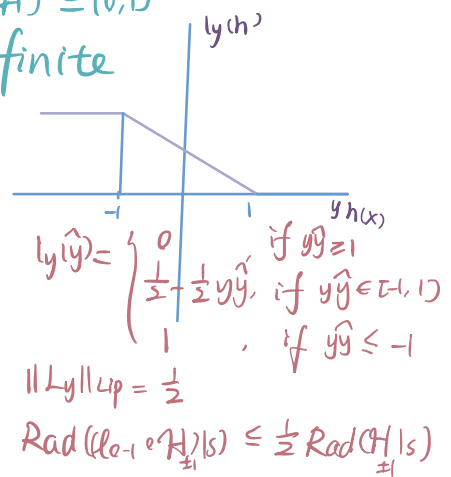 H) = {0,1}
finite
ly(h)
-1
1
yh(x)
ly(ŷ)= { 0 if yŷ≥1
1/2 - 1/2 yŷ, if yŷ ∈ [-1, 1]
1 , if yŷ ≤ -1
||Ly||Lip = 1/2
Rad((l0-1 ∘ H±1)|s) ≤ 1/2 Rad(H±1|s)